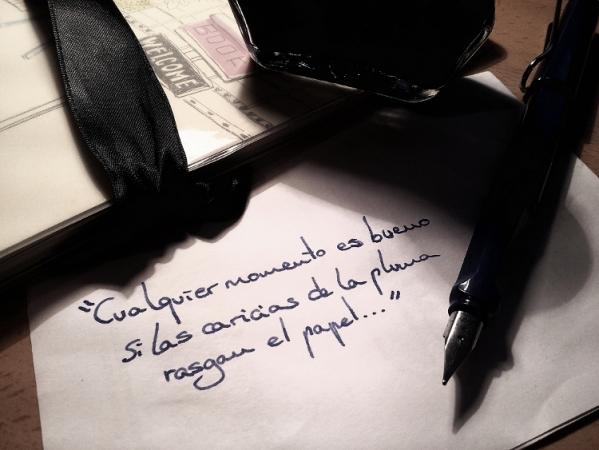 BOOK
WELCOME
"Cualquier momento es bueno
si las caricias de la pluma
rasgan el papel..."